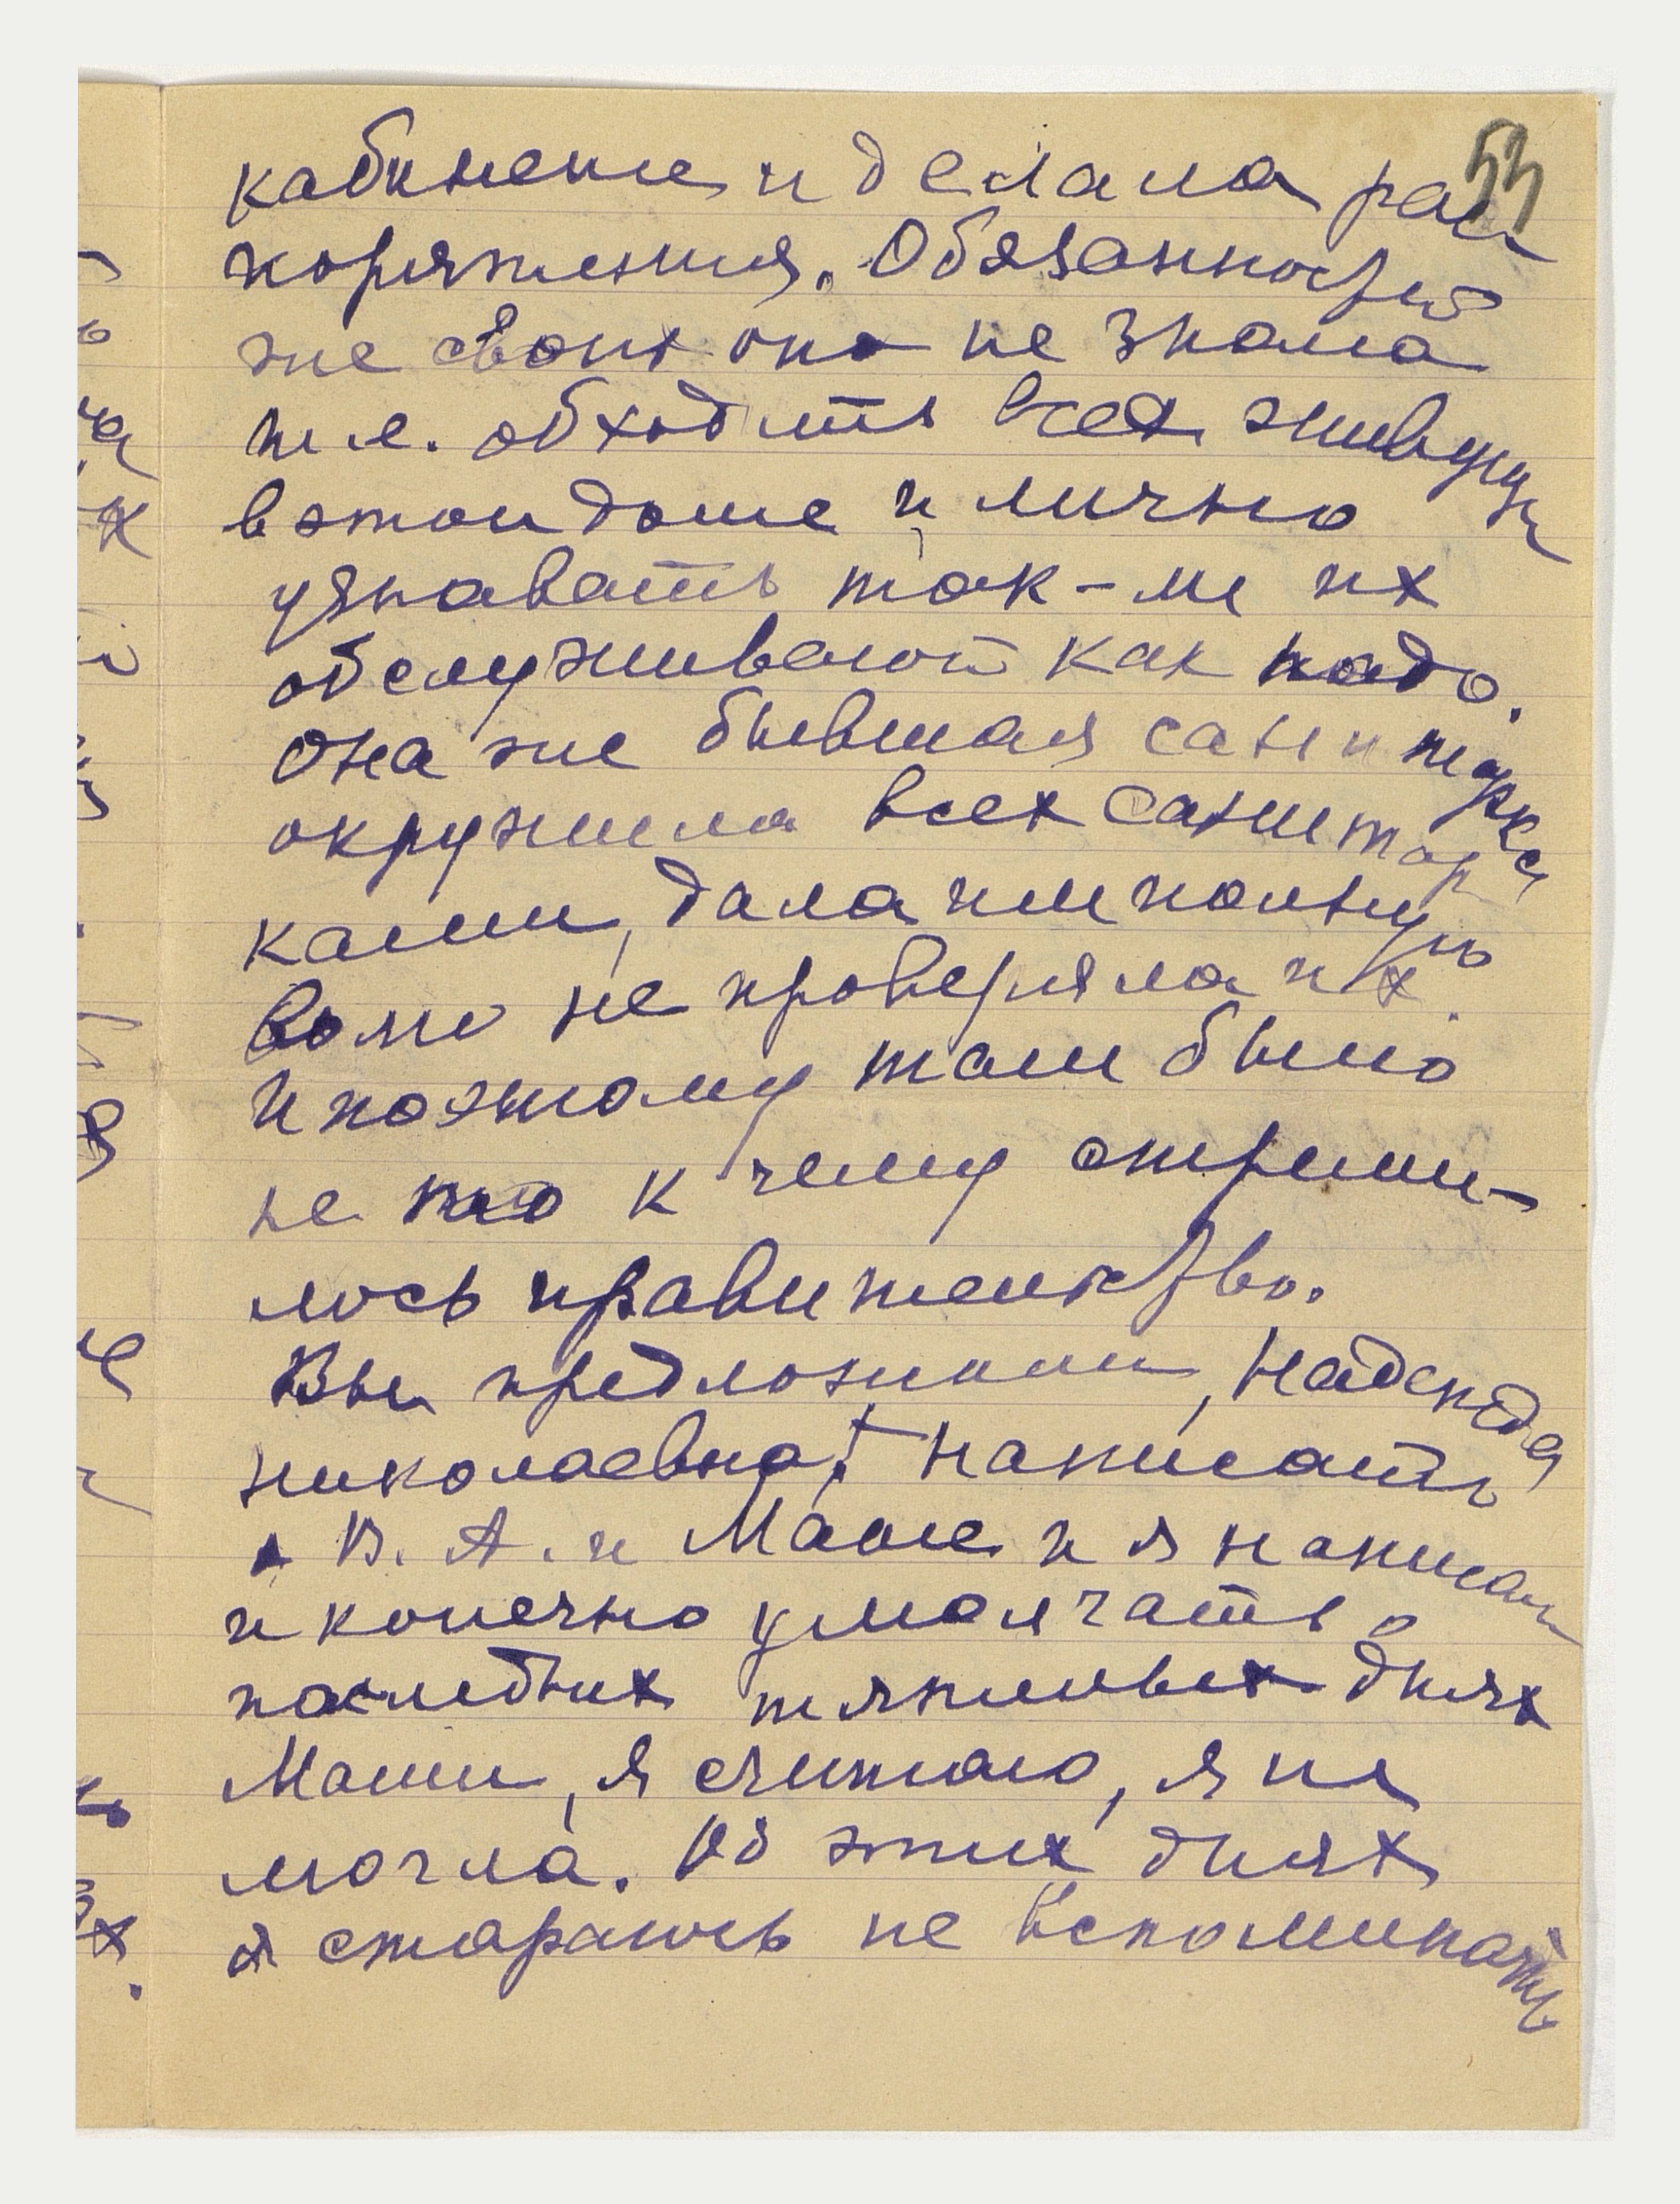 53
кабинете и делала рас
поряжения. Обязанностей
же своих она не знала
т.е. обходить всех живущих
в этом доме и лично
узнавать так-ли их
обслуживают как надо.
Она же бывшая санитарка
окружила всех санитар
ками, дала им полную
волю не проверяла их.
И поэтому там было
не то к чему стреми-
лось правительство.
Вы предложили, Надежда
Николаевна, написать
В. А. и Маше и я написала
и конечно умолчать о
последних тяжелых днях
Маши, я считаю, я не
могла. Об этих днях
я стараюсь не вспоминать